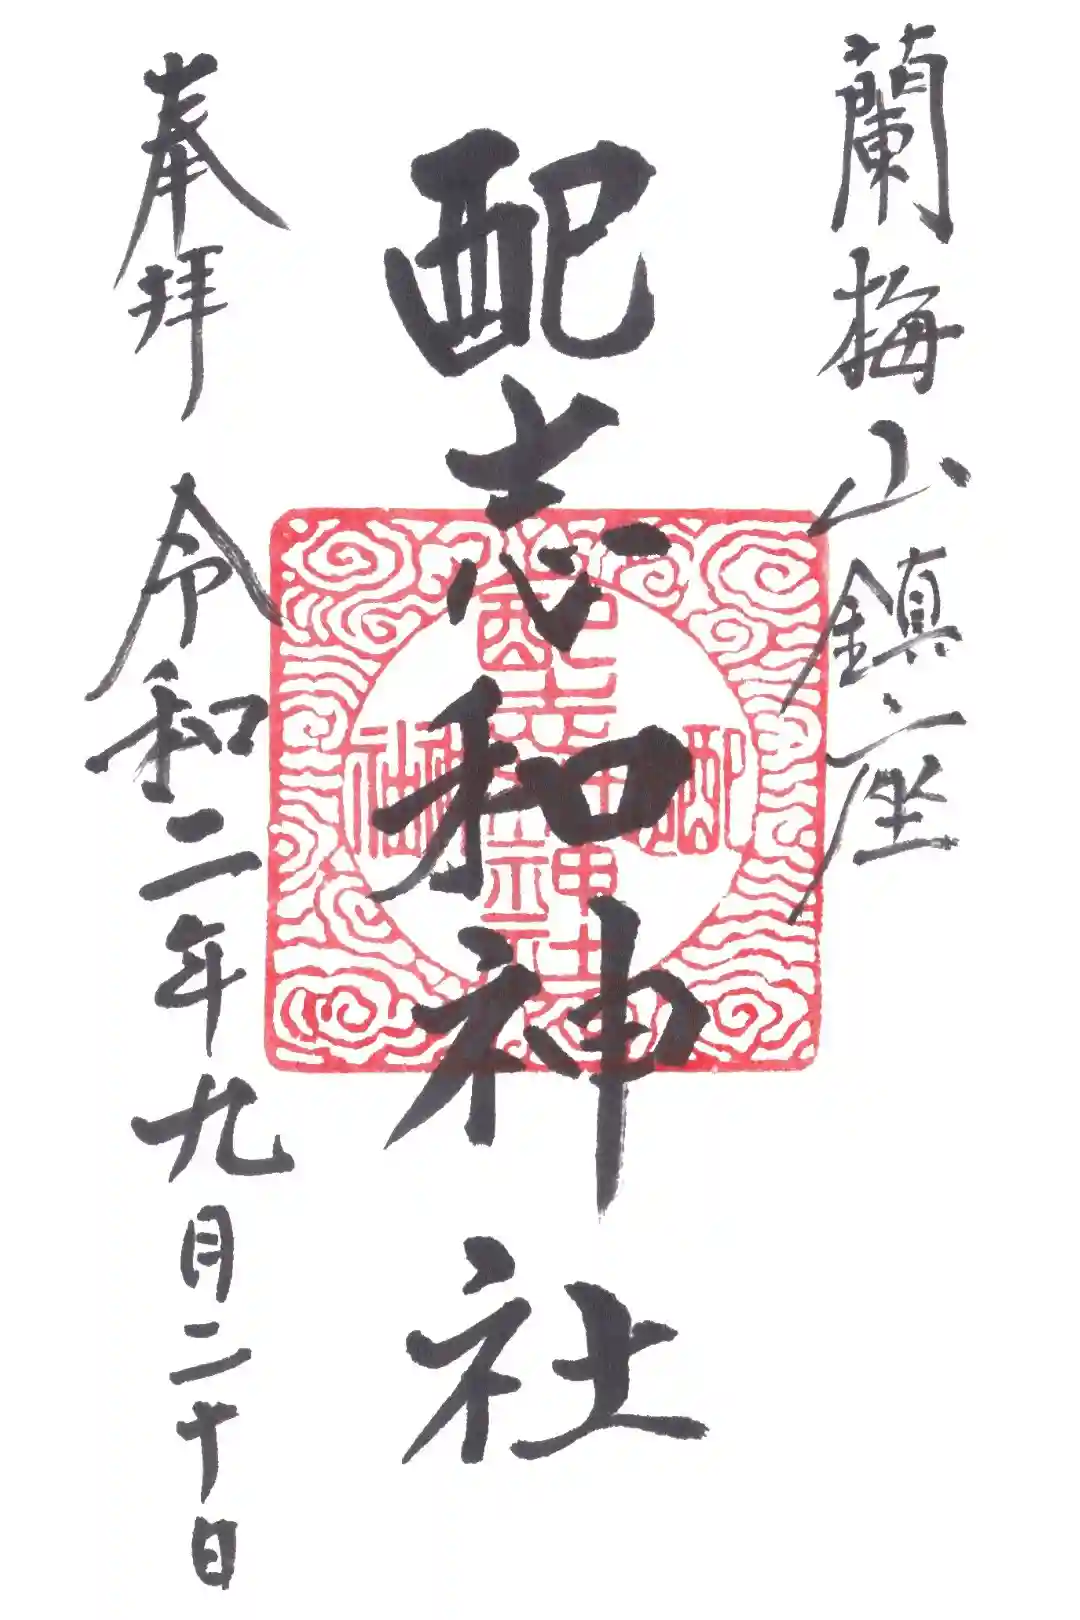 蘭梅山鎮座
配志和神社
奉拝 令和二年九月二十日